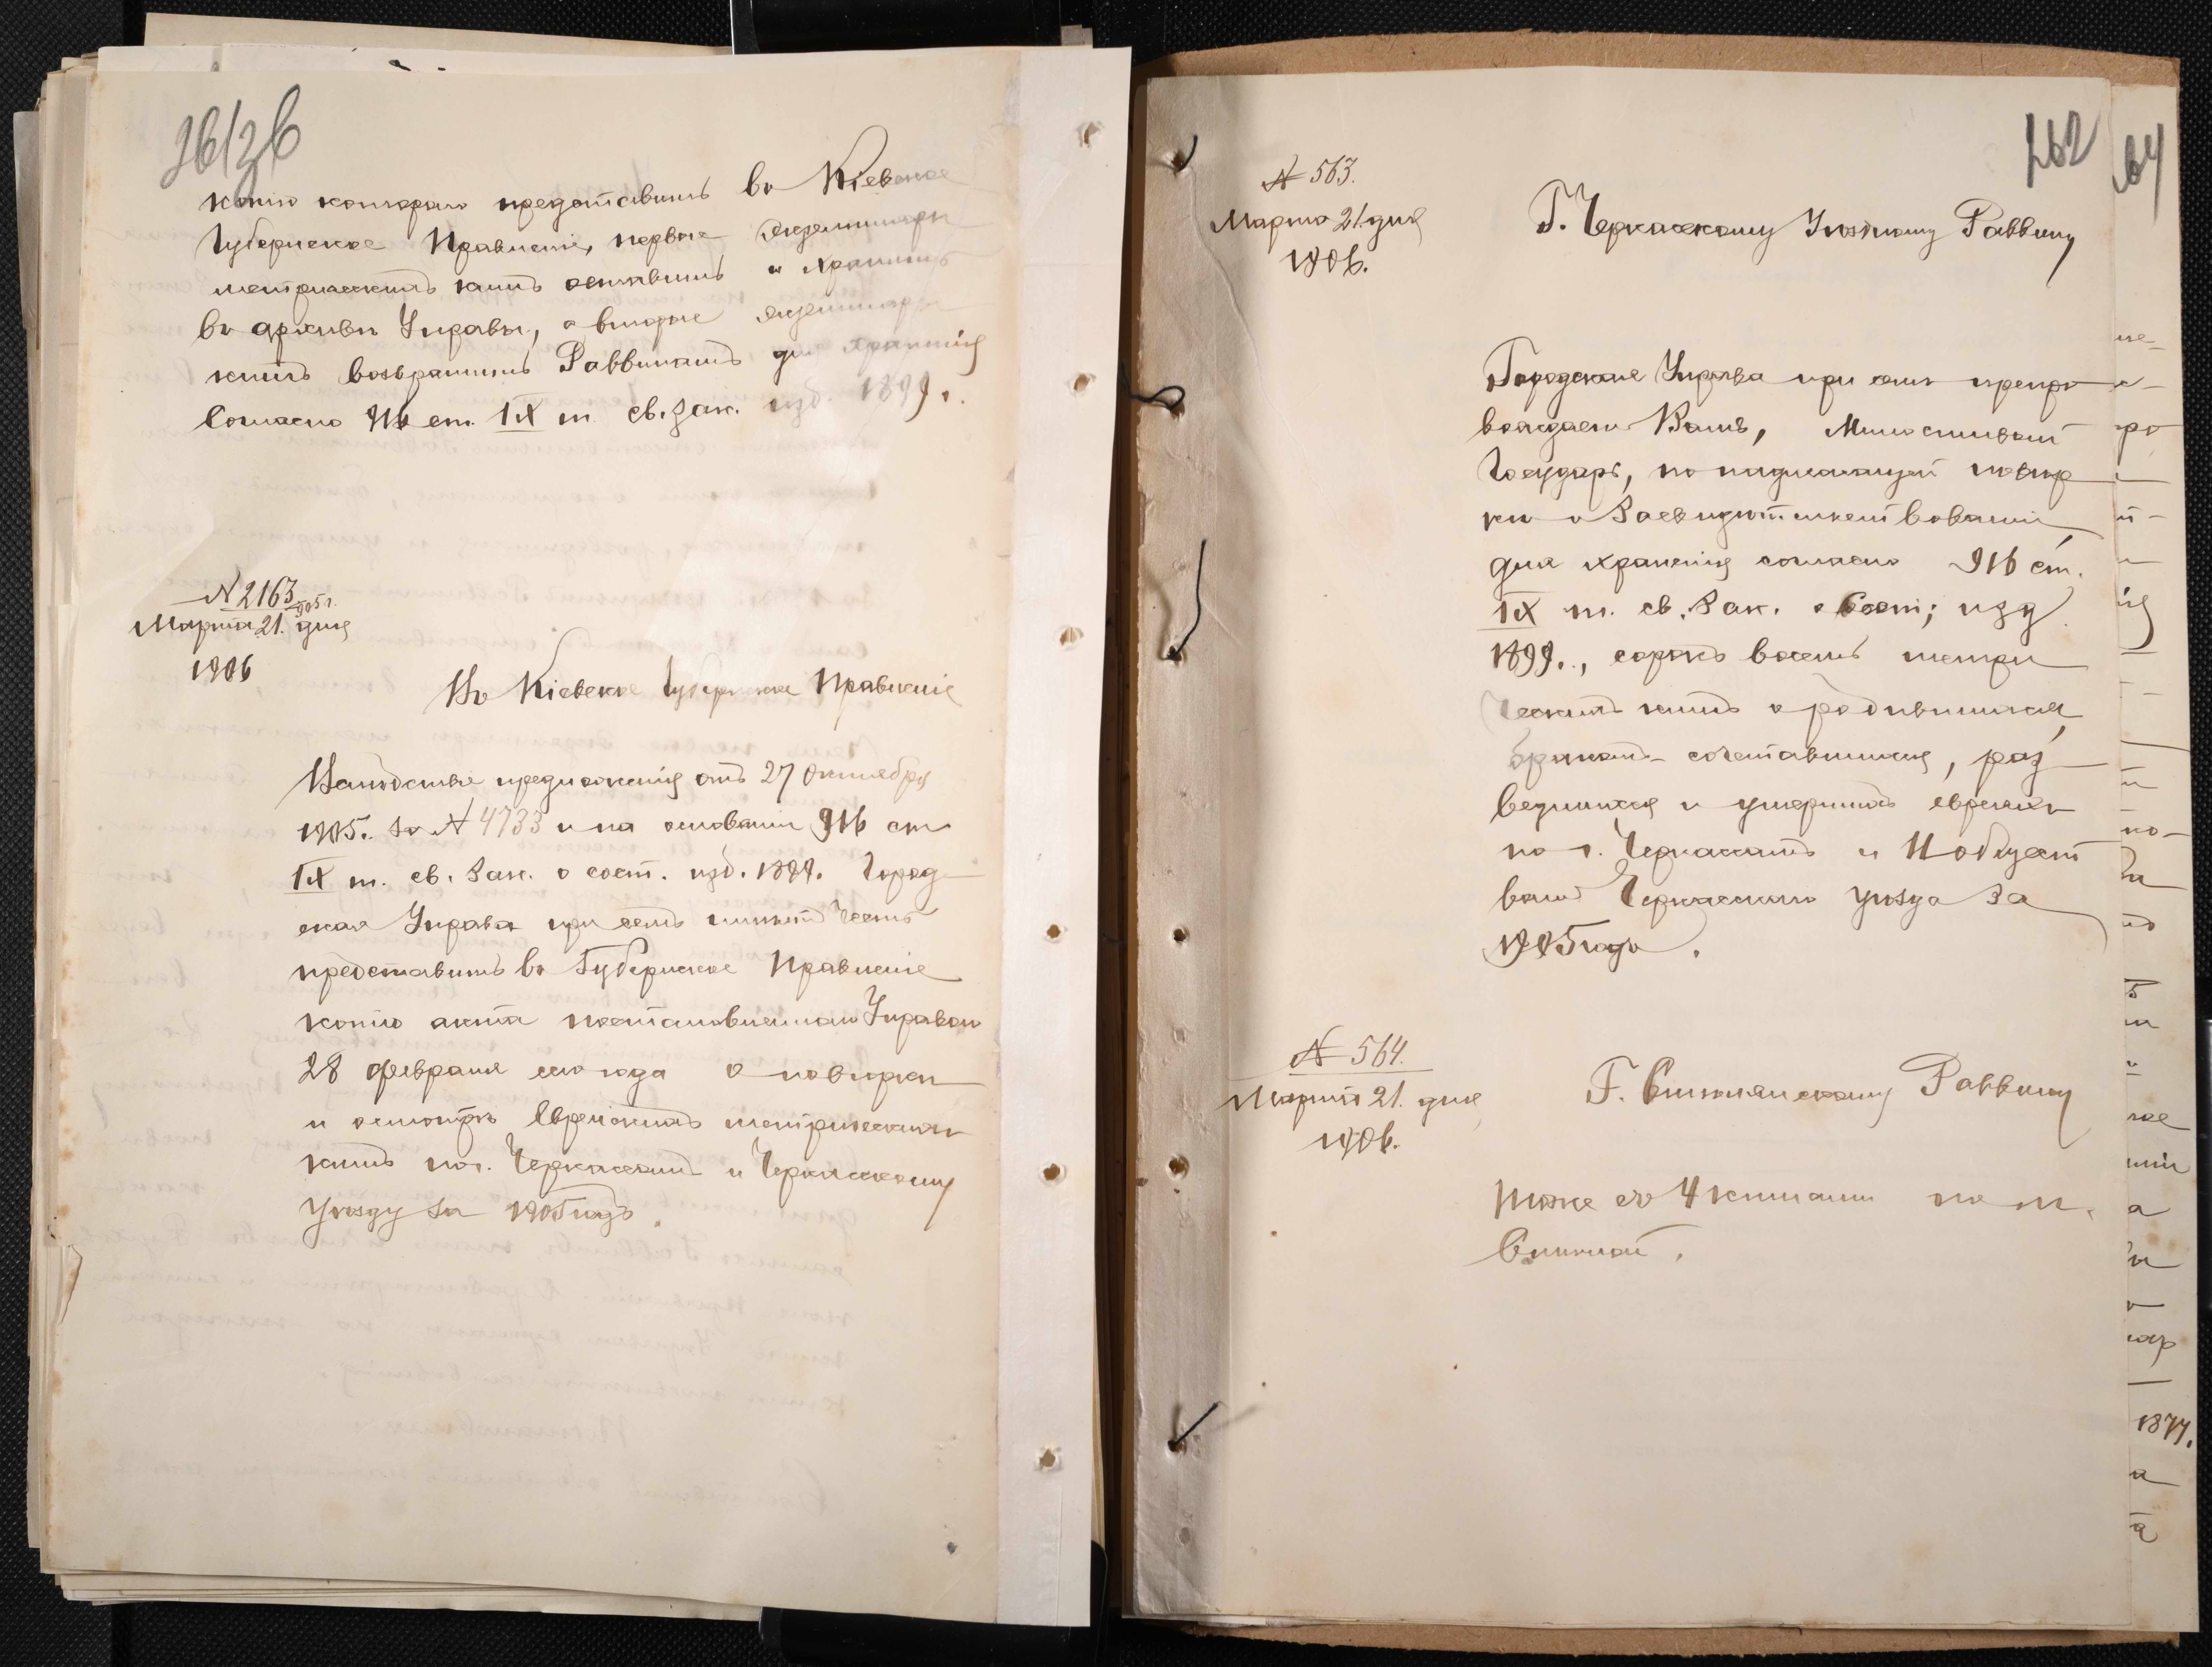 копію котораго представить въ Кіевское
Губернское Правленіе, первые экземпляры
метрическихъ книгъ оставить и хранить
въ архивѣ Управы, а вторые экземпляры
книгъ возвратить Раввинамъ для храненія
Согласно 916 ст. IX т. св. зак. изд. 1899 г.
№ 2163
905 г.
Марта 21. дня
1906
Въ Кіевское Губернское Правленіе
Вслѣдствіе предложенія отъ 27 Октября
1905. за № 4733 и на основаніи 916 ст
IX т. св. Зак. о сост. изд. 1899. Город
ская Управа при семъ имѣетъ честь
представить въ Губернское Правленіе
копію акта постановленнаго Управою
28 февраля сего года о повѣркѣ
и осмотрѣ Еврейскихъ метрическихъ
книгъ по г. Черкассамъ и Черкасскому
уѣзду за 1905 годъ.
262
64
№ 563.
Марта 21. дня
1906.
Г. Черкасскому Уѣздному Раввину
Городская Управа при семъ препро
вождаетъ Вамъ, Милостивый
Государь, по надлежащей повѣр
кѣ и Засвидѣтельствованіи,
для храненія согласно 916 ст.
IX т. св. Зак. о Сост; изд.
1899., сорокъ восемь метри
ческихъ книгъ о родившихся,
бракомъ сочетавшихся, раз
ведшихся и умершихъ евреяхъ
по г. Черкассамъ и
Черкасскаго уѣзда за
1905 года.
№ 564.
Марта 21. дня
1906.
Г. Смѣлянскому Раввину
Тоже съ 4 книгами по м.
Смѣлой.
1877.